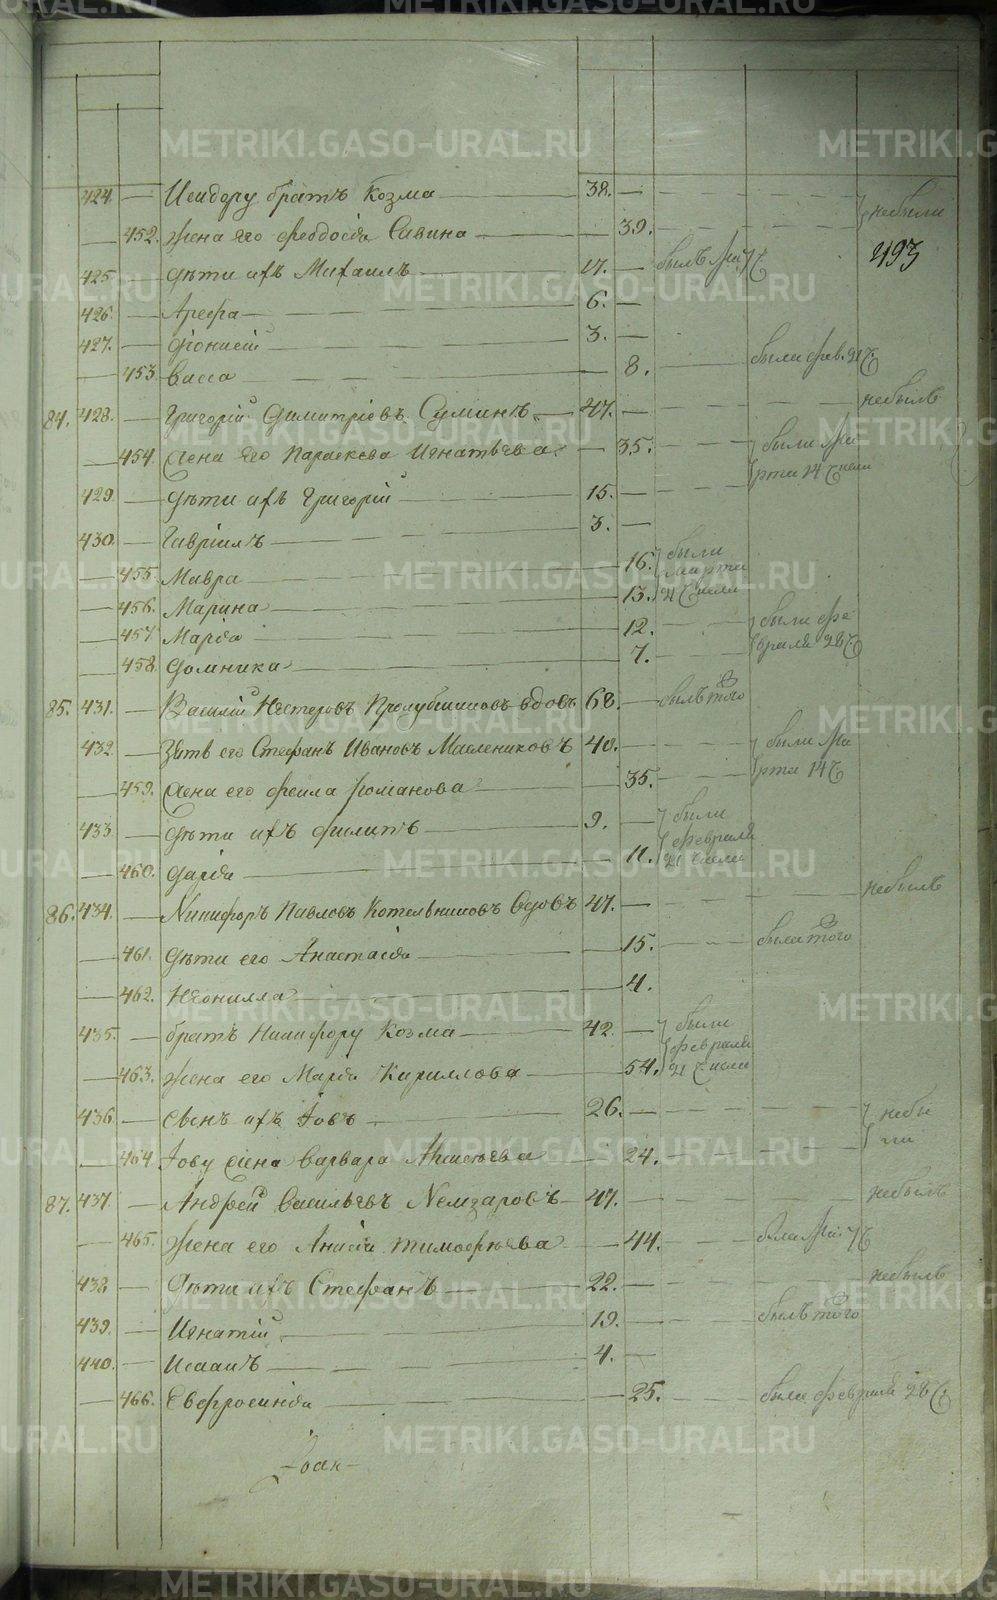 424. Исидору братъ Козма 38. небыли
452. жена его Феодосіа Савина 39.
493
425. дѣти ихъ Михаилъ 17. былъ
426. Арефа 6.
427. Діонисій 3.
453. Васса 8. были фев. 21 ч.
84. 428. Григорій Димитріевъ Суминъ 47. небылъ
454. Жена его Параскева Игнатьева 35. были ма
429. дѣти ихъ Григорій 15. рта 14 числа
430. Гавріилъ 3.
455. Мавра 16. были марта
456. Марина 13. 21 числа
457. Марѳа 12. были фе
458. Домника 7. враля 28 ч.
85. 431. Василій Нестеровъ вдовъ 68. былъ того
432. Зять его Стефанъ Ивановъ Маслениковъ 40. были ма
459. Жена его Феила Романова 35. рта 14 ч
433. дѣти ихъ Филипъ 9. были февраля
460. Дарѳа 11. 21 числа
86. 434. Никифоръ Павловъ Котельниковъ вдовъ 47. небылъ
461. дѣти его Анастасіа 15. была того
462. Неонилла 4.
435. братъ Никифору Козма 42. были февраля
463. жена его Марѳа Кириллова 54. 21 числа
436. сынъ ихъ Іовъ 26. небы
464. Іову жена Варвара Алексѣева 24. ли
87. 437. Андрей Васильевъ 47. небылъ
465. жена его Анисіа Тимофѣева 44. была
438. дѣти ихъ Стефанъ 22. небылъ
439. Игнатій 19. былъ того
440. Исаакъ 4.
466. Евфросиніа 25. были февраля 28 ч.
METRIKI.GASO-URAL.RU